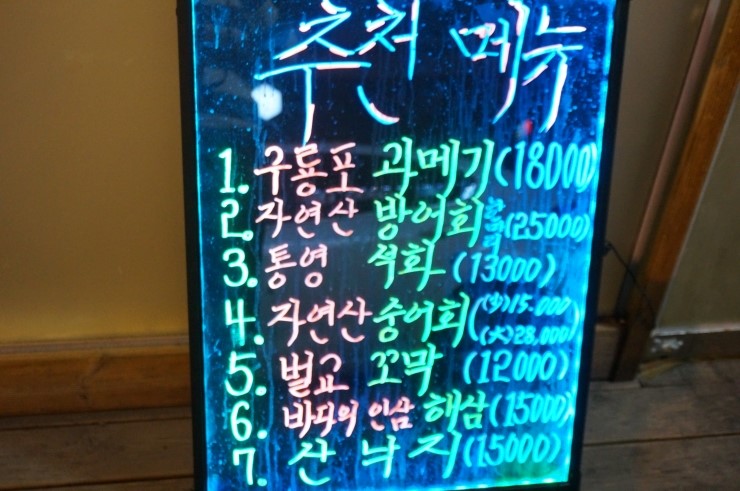 추천 메뉴
1. 구룡포 과메기 (18000)
2. 자연산 방어회 (25000)
3. 통영 석화 (13000)
4. 자연산 숭어회 (小) 15.000
(大) 28,000)
5. 벌교 꼬막 (12000)
6. 바다의 인삼 해삼 (15000)
7. 산낙지 (15000)